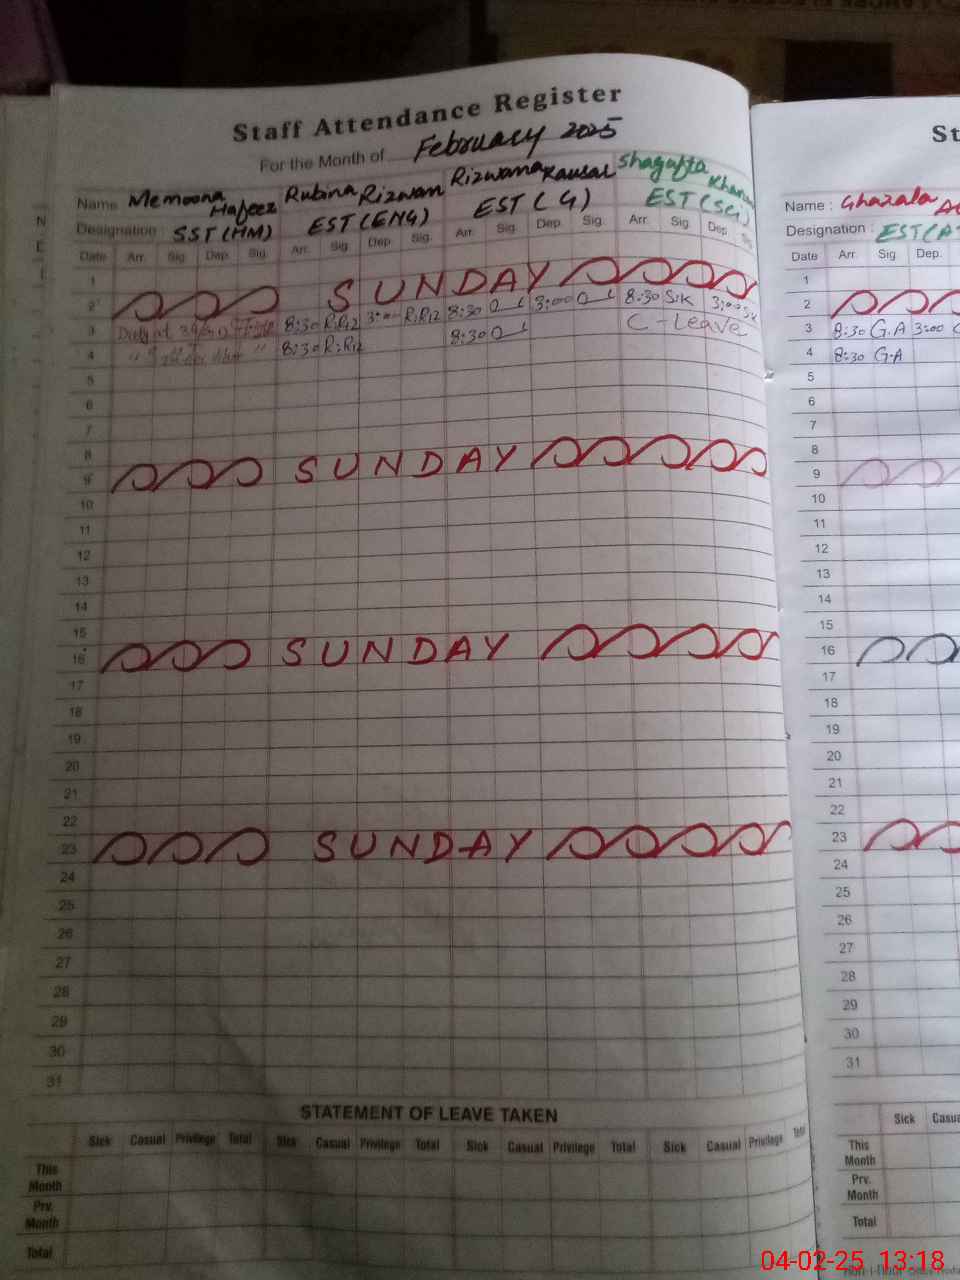 Staff Attendance Register
For the Month of February 2025
Name Memoona Hafeez Rubina Rizwan Rizwana Kausar Shagufta Khanam
Designation : SST (HM) EST (ENG) EST ( G ) EST (Sci)
Date Arr. Sig. Dep. Sig. Arr. Sig. Dep. Sig. Arr. Sig. Dep. Sig. Arr. Sig. Dep. Sig.
1
2 SUNDAY
3 Duty at 8:30 R.Riz 3:00 R.Riz 8:30 3:00 8:30 S.K 3:00 S.K
4 8:30 R.Riz 8:30 C-Leave
5
6
7
8
9 SUNDAY
10
11
12
13
14
15
16 SUNDAY
17
18
19
20
21
22
23 SUNDAY
24
25
26
27
28
29
30
31
STATEMENT OF LEAVE TAKEN
Sick Casual Privilege Total Sick Casual Privilege Total Sick Casual Privilege Total Sick Casual Privilege Total
This Month
Prv. Month
Total
St
Name : Ghazala
Designation : EST(A
Date Arr. Sig. Dep.
1
2
3 8:30 G.A 3:00
4 8:30 G.A
5
6
7
8
9
10
11
12
13
14
15
16
17
18
19
20
21
22
23
24
25
26
27
28
29
30
31
Sick Casua
This Month
Prv. Month
Total
04-02-25 13:18